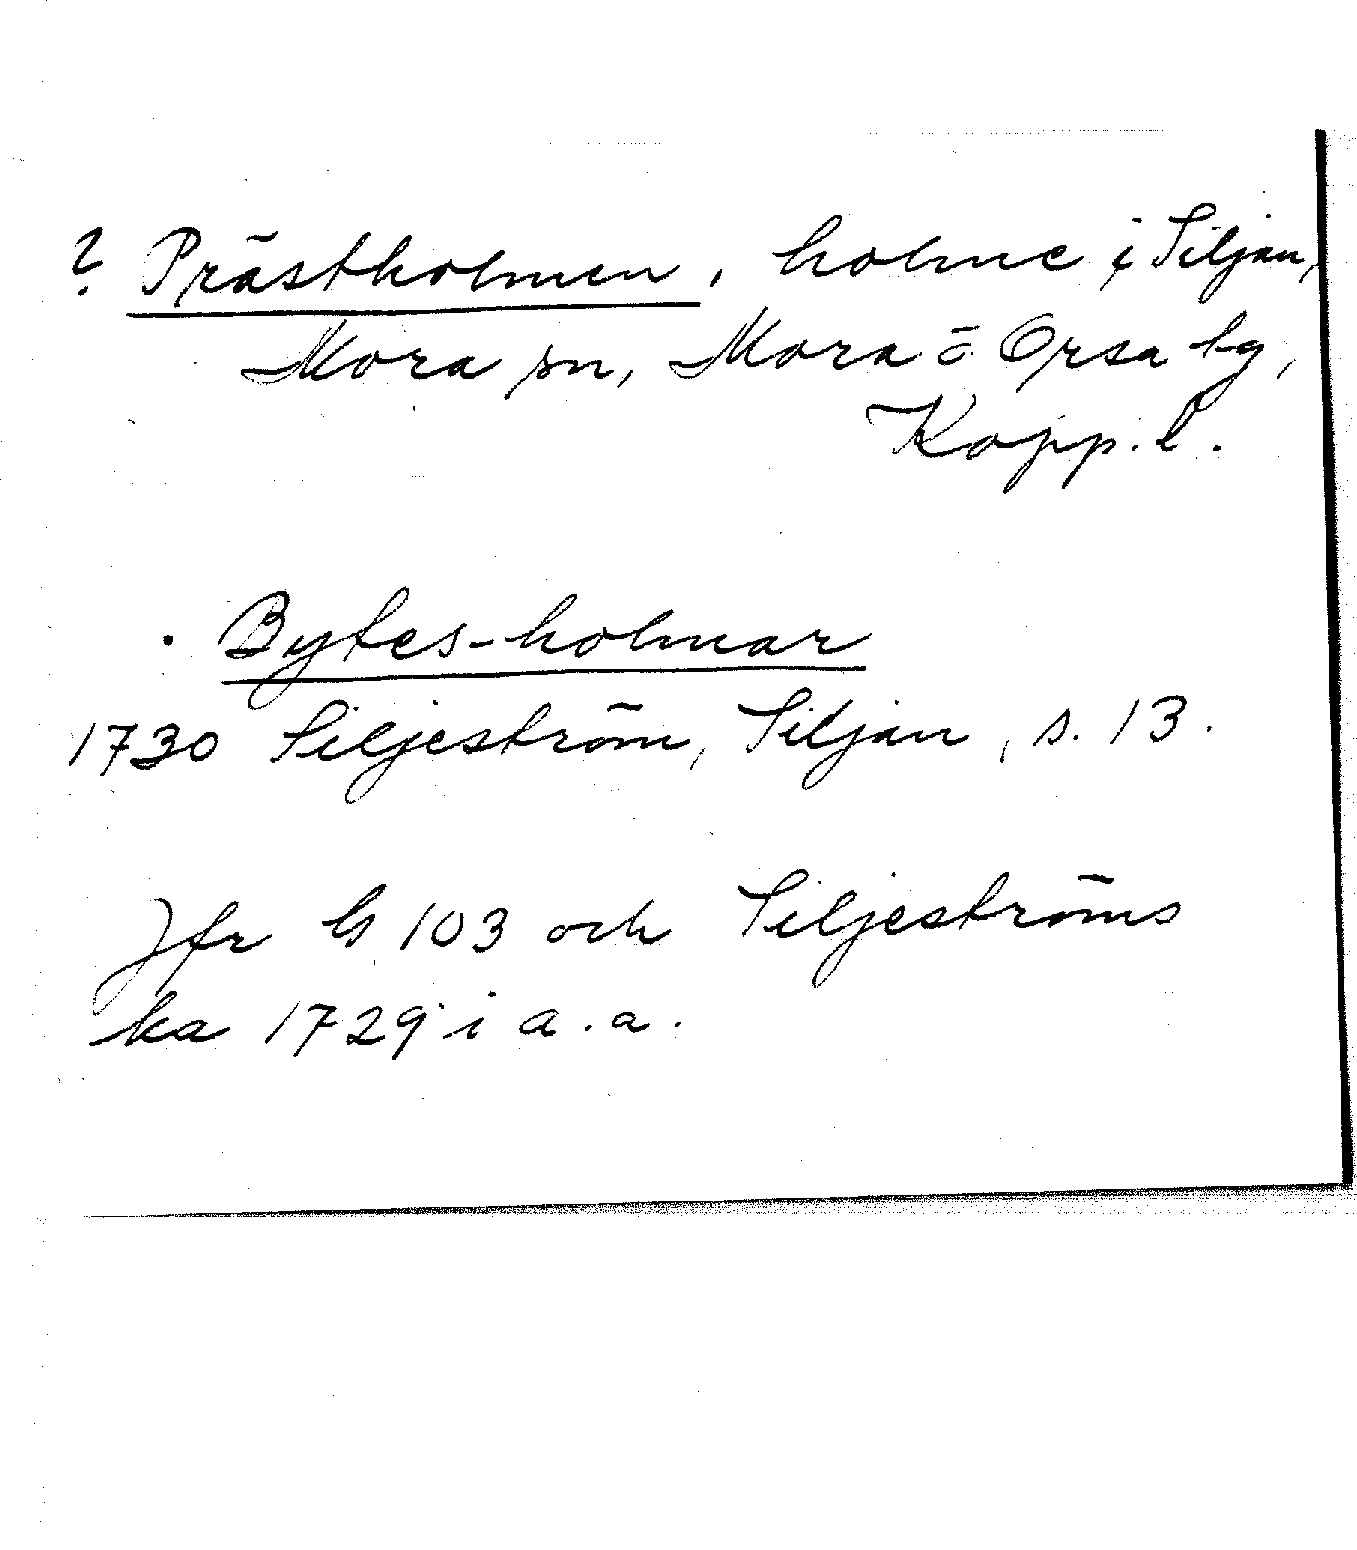 ? Prästholmen, holme i Siljan,
Mora sn, Mora o Orsa tg,
Kopp. l.
. Bytes-holmar
1730 Siljeström, Siljan, s. 13.
Jfr 103 och Siljeströms
ka 1729 i a.a.